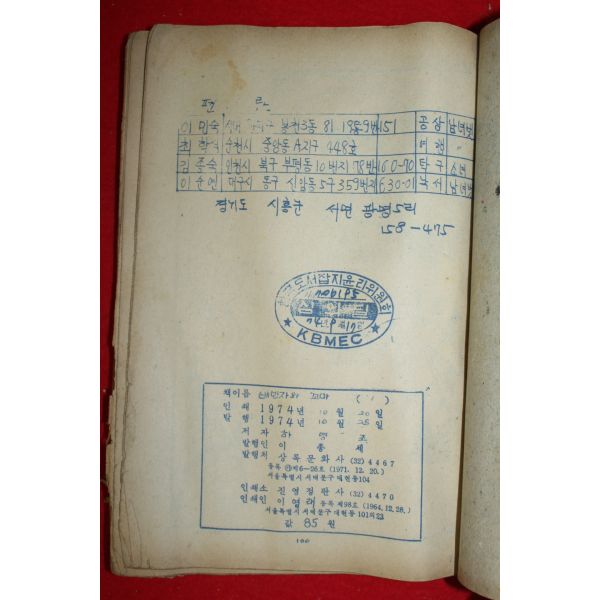 펜 란
이 미숙 봉천3동 81 151 공상 남녀
순천시 중앙동 A지구 448호
김 종숙 인천시 북구 부평동 10번지 78반 160-90 탁구 소녀
이 순연 대구시 동구 신암동 5구 359번지 630-01 독서 남녀
경기도 시흥군 서면 광명5리
158-475
한국도서잡지윤리위원회
KBMEC
책이름 (1)
인쇄 1974년 10월 20일
발행 1974년 10월 25일
저자 하 영 조
발행인 이 종 세
발행처 상록문화사 (32) 4467
등록 ㉮제6-26호 (1971. 12. 20.)
서울특별시 서대문구 대현동104
인쇄소 진영정판사 (32) 4470
인쇄인 이영래 등록 제98호 (1964.12.28.)
서울특별시 서대문구 대현동 101의23
값 85원